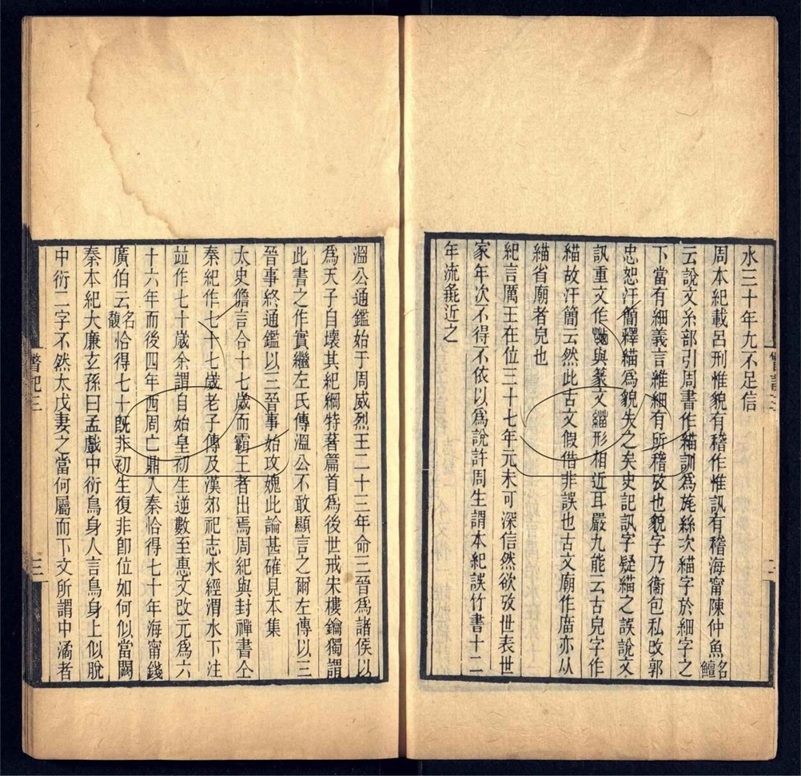 水三十年九不足信
周本紀載呂刑惟貌有稽作惟訊有稽海甯陳仲魚名鱣
云說文糸部引周書作緢訓為旄絲次緢字於細字之
下當有細義言雖細有所稽攷也貌字乃衞包私改郭
忠恕汗簡釋緢為貌失之矣史記訊字疑緢之誤說文
訊重文作與篆文緢形相近耳嚴九能云古皃字作
緢故汗簡云然此古文假借非誤也古文廟作庿亦从
緢省廟者皃也
紀言厲王在位三十七年元未可深信然欲攷世表世
家年次不得不依以為說許周生謂本紀誤竹書十二
年流彘近之
溫公通鑑始于周威烈王二十三年命三晉為諸侯以
為天子自壞其紀綱特著篇首為後世戒宋樓鑰獨謂
此書之作實繼左氏傳溫公不敢顯言之爾左傳以三
晉事終通鑑以三晉事始攻媿此論甚確見本集
太史儋言合十七歲而霸王者出焉周紀與封禪書仝
秦紀作七十七歲老子傳及漢郊祀志水經渭水下注
竝作七十歲余謂自始皇初生逆數至惠文改元為六
十六年而後四年西周亡鼎入秦恰得七十年海甯錢
廣伯名馥云恰得七十旣非初生復非卽位如何似當闕
秦本紀大廉玄孫曰孟戲中衍鳥身人言鳥身上似脫
中衍二字不然太戊妻之當何屬而下文所謂中潏者
瞥記三
三